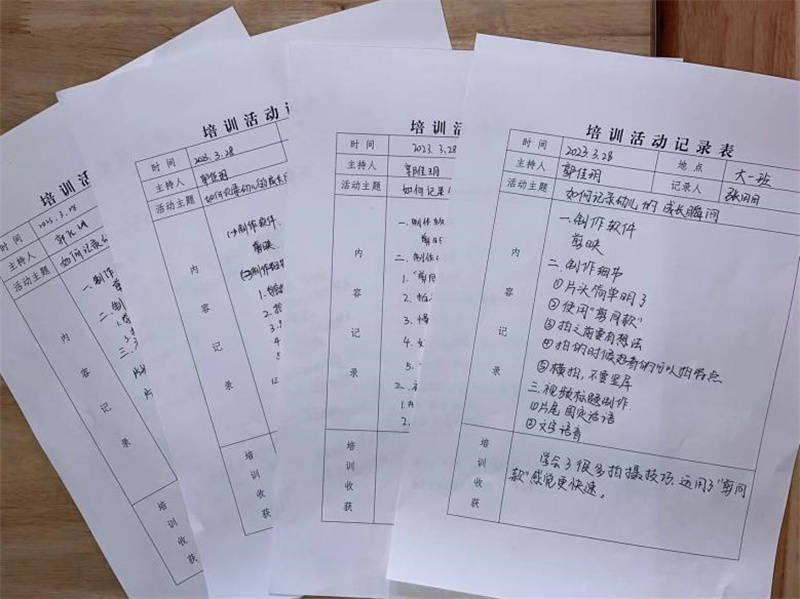 培训活
时间 2023.3.28
主持人
活动主题 如何记录
内容记录
一、制作
二、制
三、
培训收获
培训活动
时间 2023.3.28
主持人 郭佳玥
活动主题 如何记录幼儿的成长
内容记录
(一)制作软件
剪映
(二)制作细节
1.
2.
培训收获
培训活
时间 2023.3.28
主持人 郭佳玥
活动主题 如何记录
内容记录
一、制作软
剪映
二、制作
1.
2.
3.
4.
5.
培训收获
培训活动记录表
时间 2023.3.28 地点 大一班
主持人 郭佳玥 记录人
活动主题 如何记录幼儿的成长瞬间
内容记录
一.制作软件
剪映
二.制作细节
①片头简单明了
②使用"剪同款"
③拍之前要有想法
④拍的时候
⑤横拍,不要竖屏
三.视频标题制作
①片尾固定话语
②文字语音
培训收获
学会了很多拍摄技巧,运用了"剪同
款"感觉更快速。